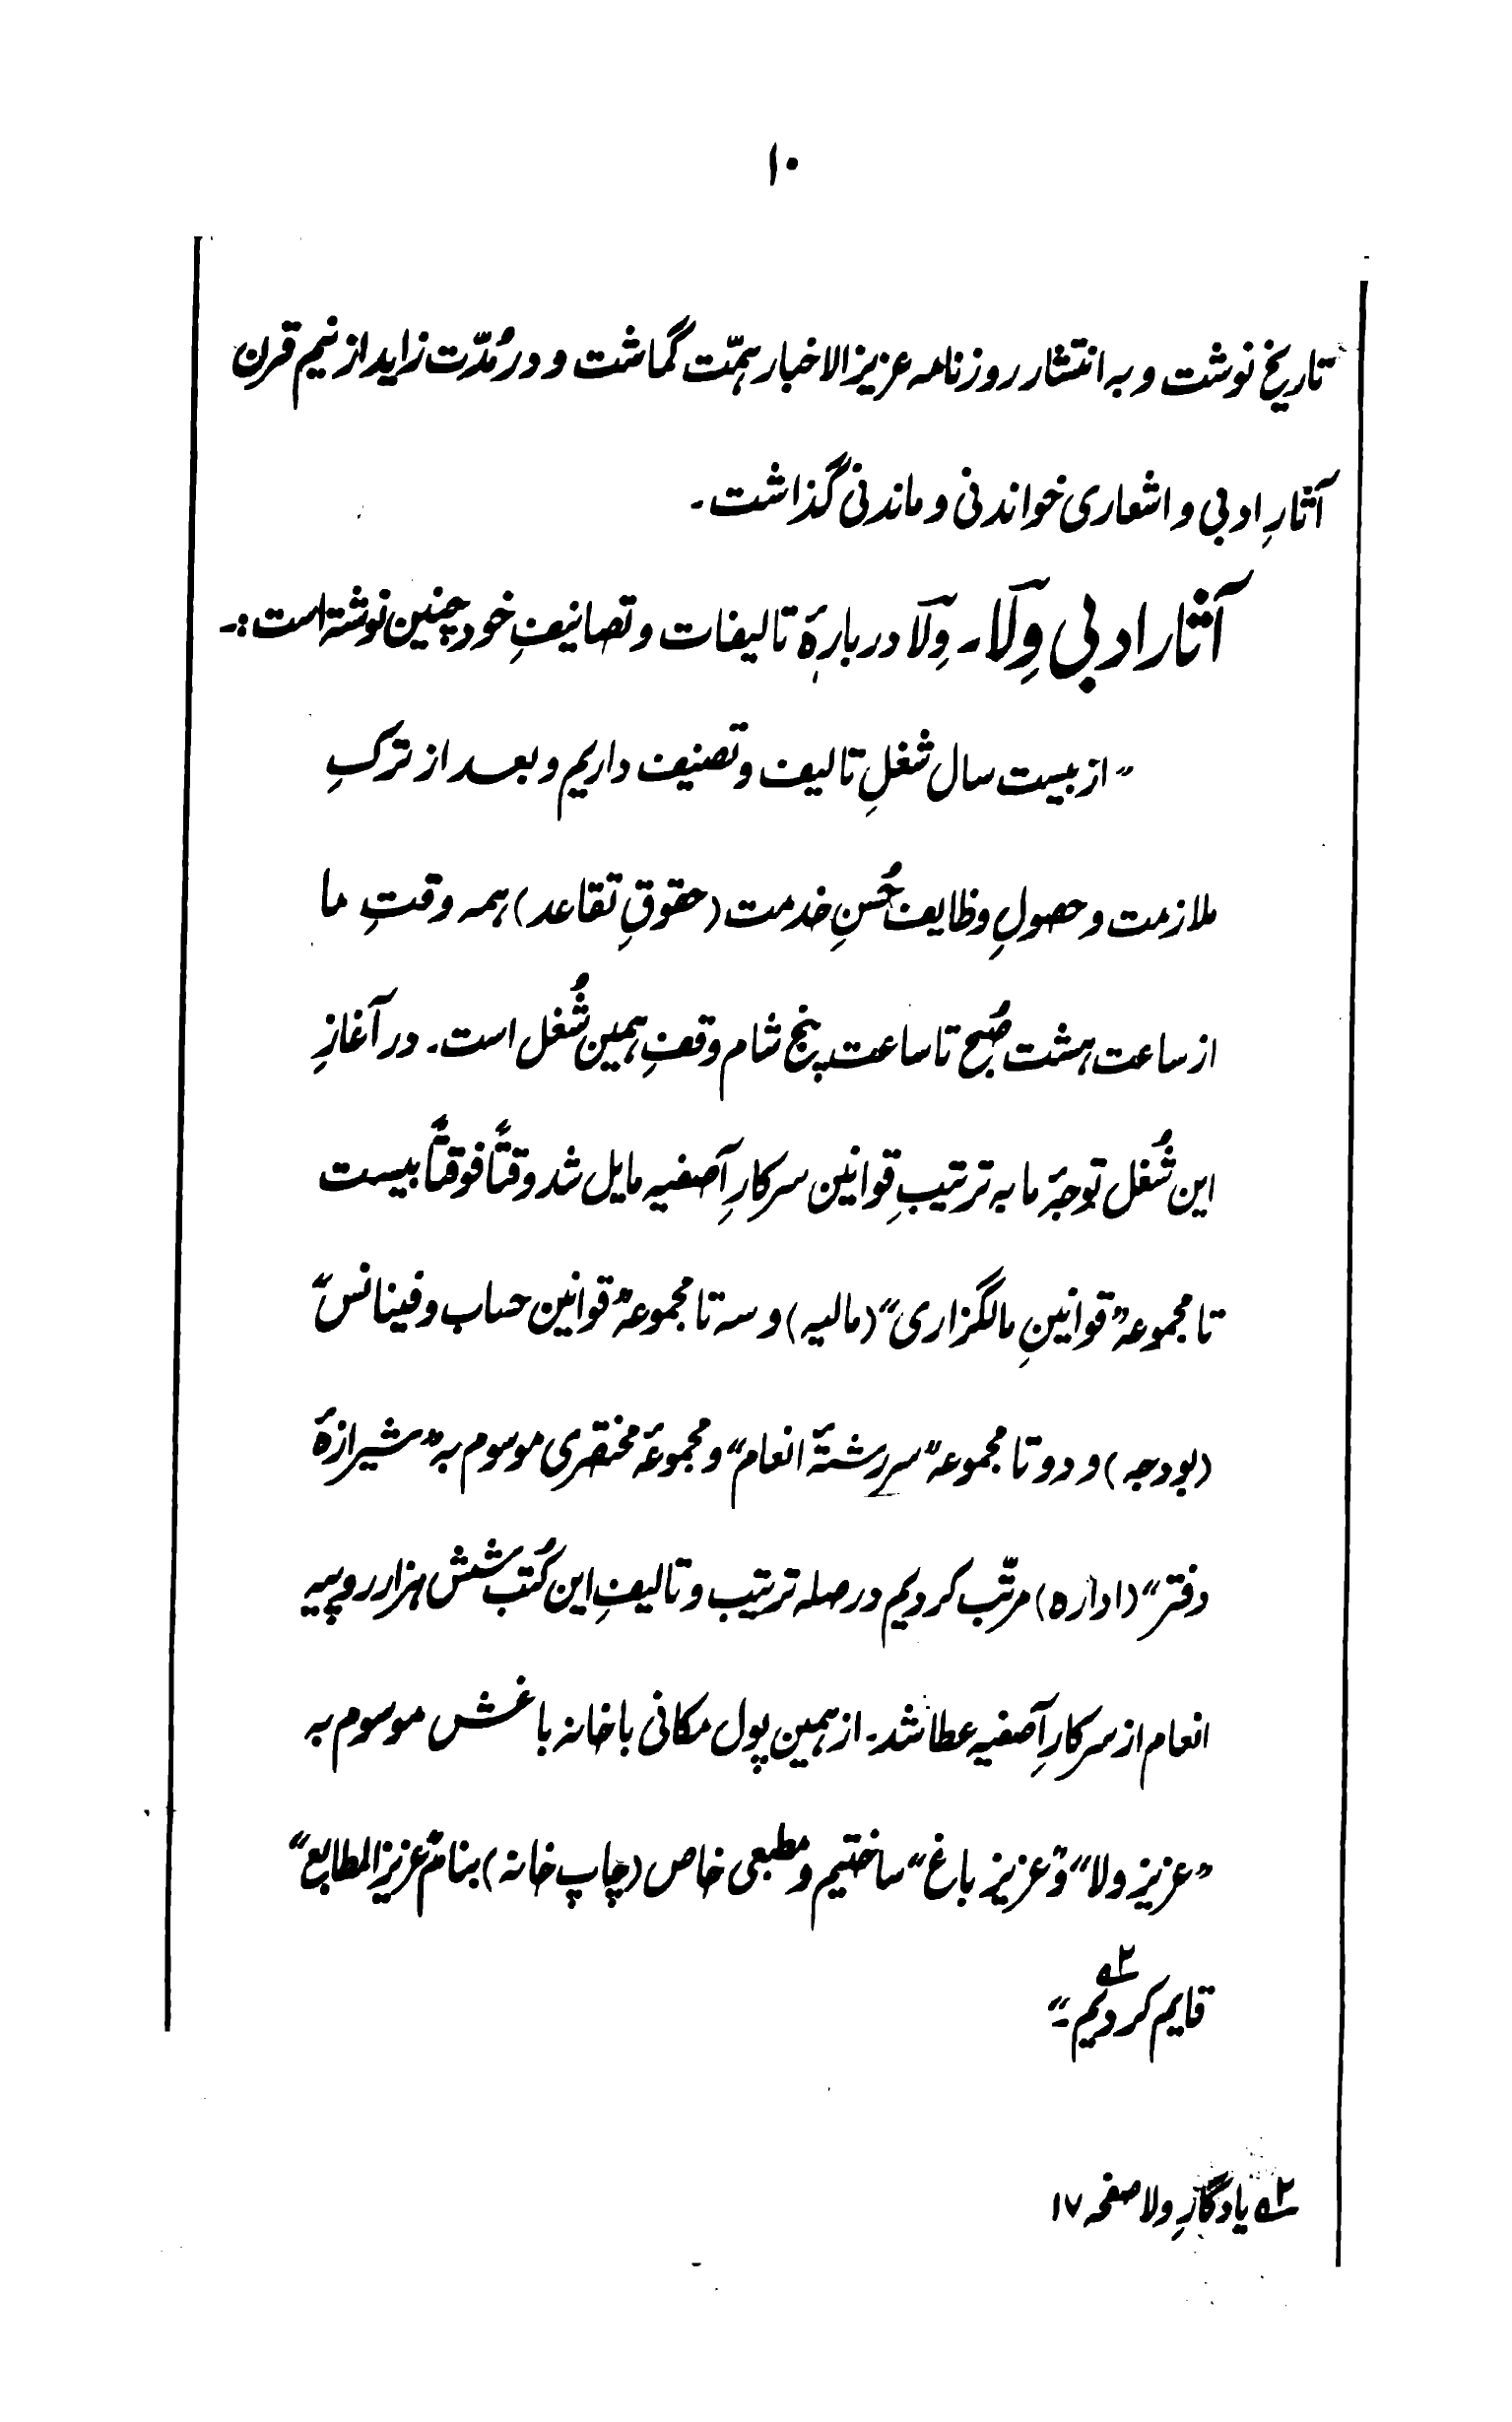 ۱۰
تاریخ نوشت و به انتشار روزنامه عزیزالاخبار ہمّت گماشت و در مُدّت زاید از نیم قرن
آثارِ ادبی و اشعاری خواندنی و ماندنی گذاشت۔
آثار ادبی وِلَا۔ وِلَا دربارۂ تالیفات و تصانیفِ خود چنین نوشته است:۔
”از بیست سال شغلِ تالیف و تصنیف داریم و بعد از ترکِ
ملازمت و حصولِ وظایف حُسنِ خدمت (حقوقِ تقاعد) ہمہ وقتِ ما
از ساعت ہشت صُبح تا ساعت پنج شام وقفِ ہمین شُغل است۔ در آغازِ
این شُغل توجۂ ما بہ ترتیبِ قوانین سرکارِ آصفیہ مایل شد وقتاً فوقتاً بیست
تا مجموعہ ”قوانینِ مالگزاری“ (مالیہ) و سہ تا مجموعہ ”قوانین حساب و فینانس“
(بودجہ) و دو تا مجموعہ ”سررشتۂ انعام“ و مجموعۂ مختصری موسوم بہ ”شیرازۂ
دفتر“ (ادارہ) مرتّب کردیم در صلہ ترتیب و تالیفِ این کُتب شش ہزار روپیہ
انعام از سرکارِ آصفیہ عطا شد۔ از ہمین پول مکانی با خانہ باغش موسوم بہ
”عزیز ولا“ و ”عزیز باغ“ ساختیم و مطبعی خاص (چاپ خانہ) بنام ”عزیز المطابع“
قایم کردیم۔“ ۲؎
۲؎ یادگارِ ولا صفحہ ۱۷